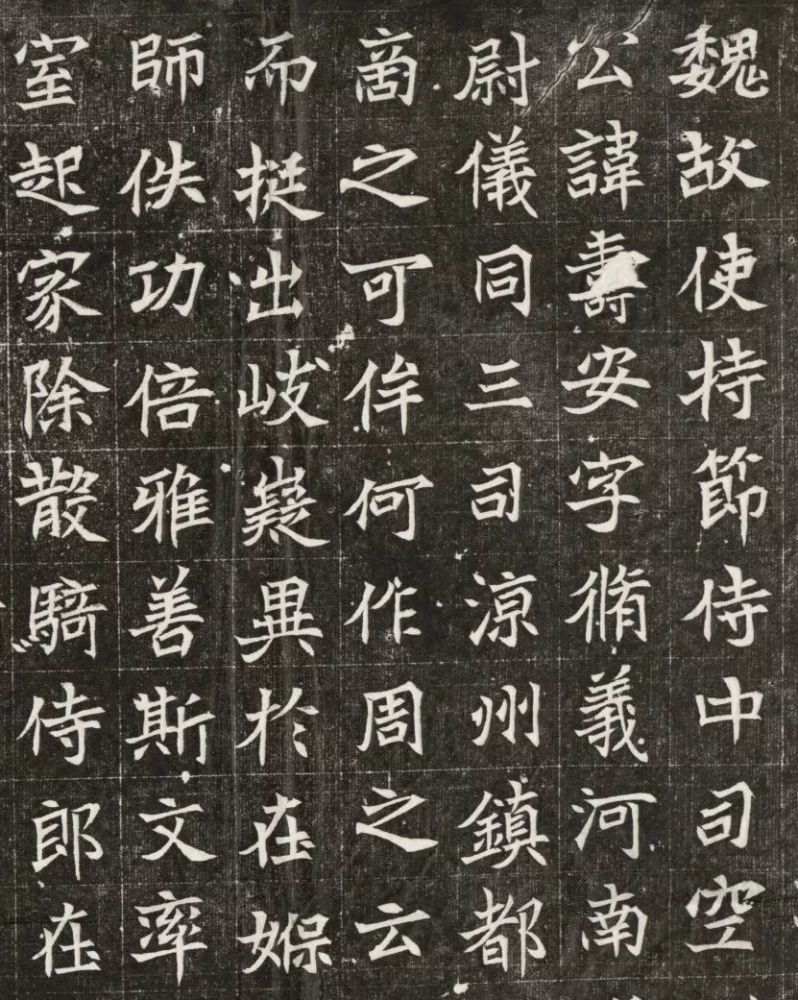 魏故使持節侍中司空
公諱壽安字脩義河南
尉儀同三司涼州鎮都
啇之可侔何作周之云
而挺出岐嶷異於在媬
師佚功倍雅善斯文率
室起家除散騎侍郎在